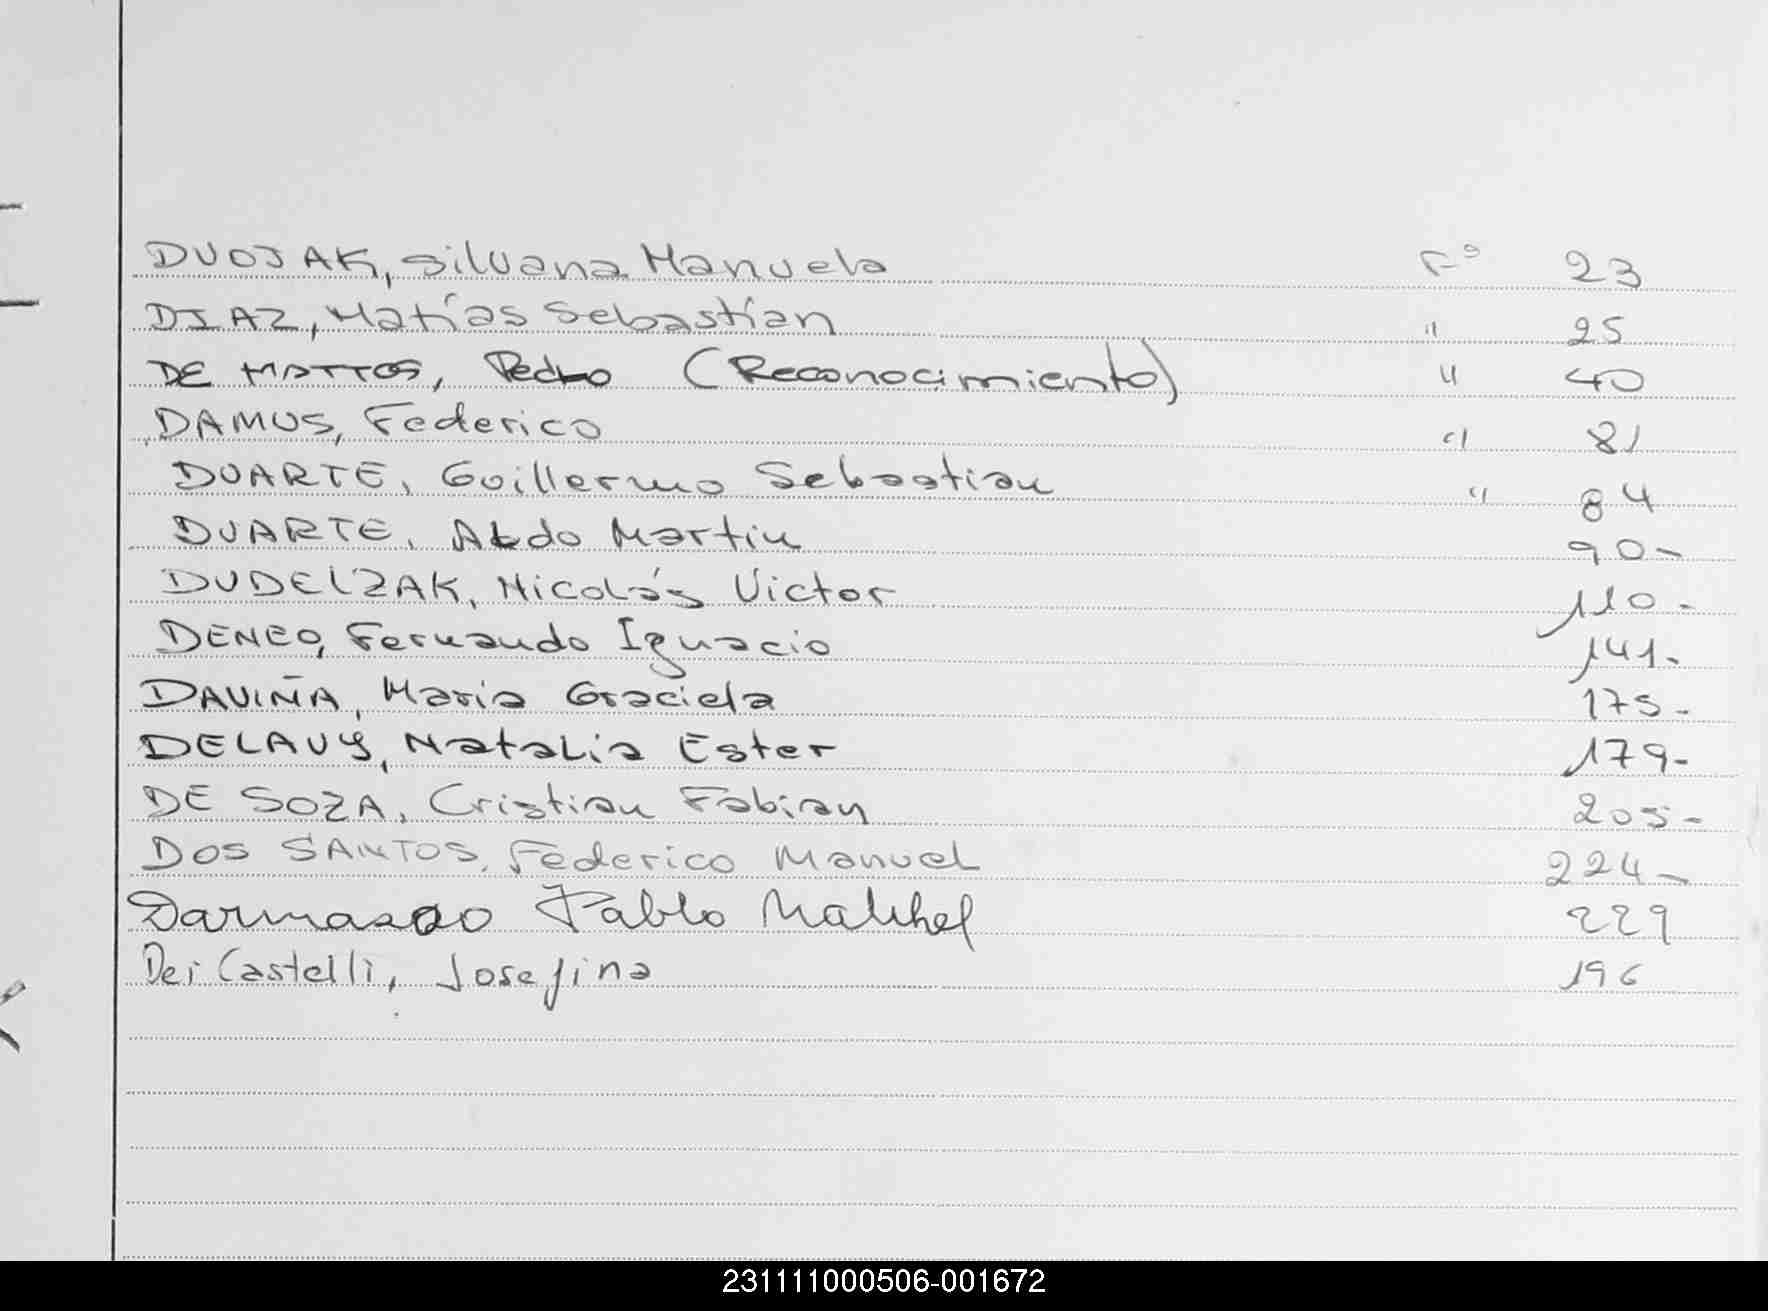 DVOJAK, Silvana Manuela Fº 23
DIAZ, Matías Sebastían " 25
DE MATTOS, Pedro (Reconocimiento) " 40
DAMUS, Federico " 81
DUARTE, Guillermo Sebastian " 84
DUARTE, Aldo Martin 90-
DUDELZAK, Nicolás Victor 110-
DENEO, Fernando Ignacio 141-
DAVIÑA, Maria Graciela 175-
DELAVY, Natalia Ester 179-
DE SOZA, Cristian Fabian 205-
DOS SANTOS, Federico Manuel 224-
Pablo 229
Dei Castelli, Josefina 196
231111000506-001672